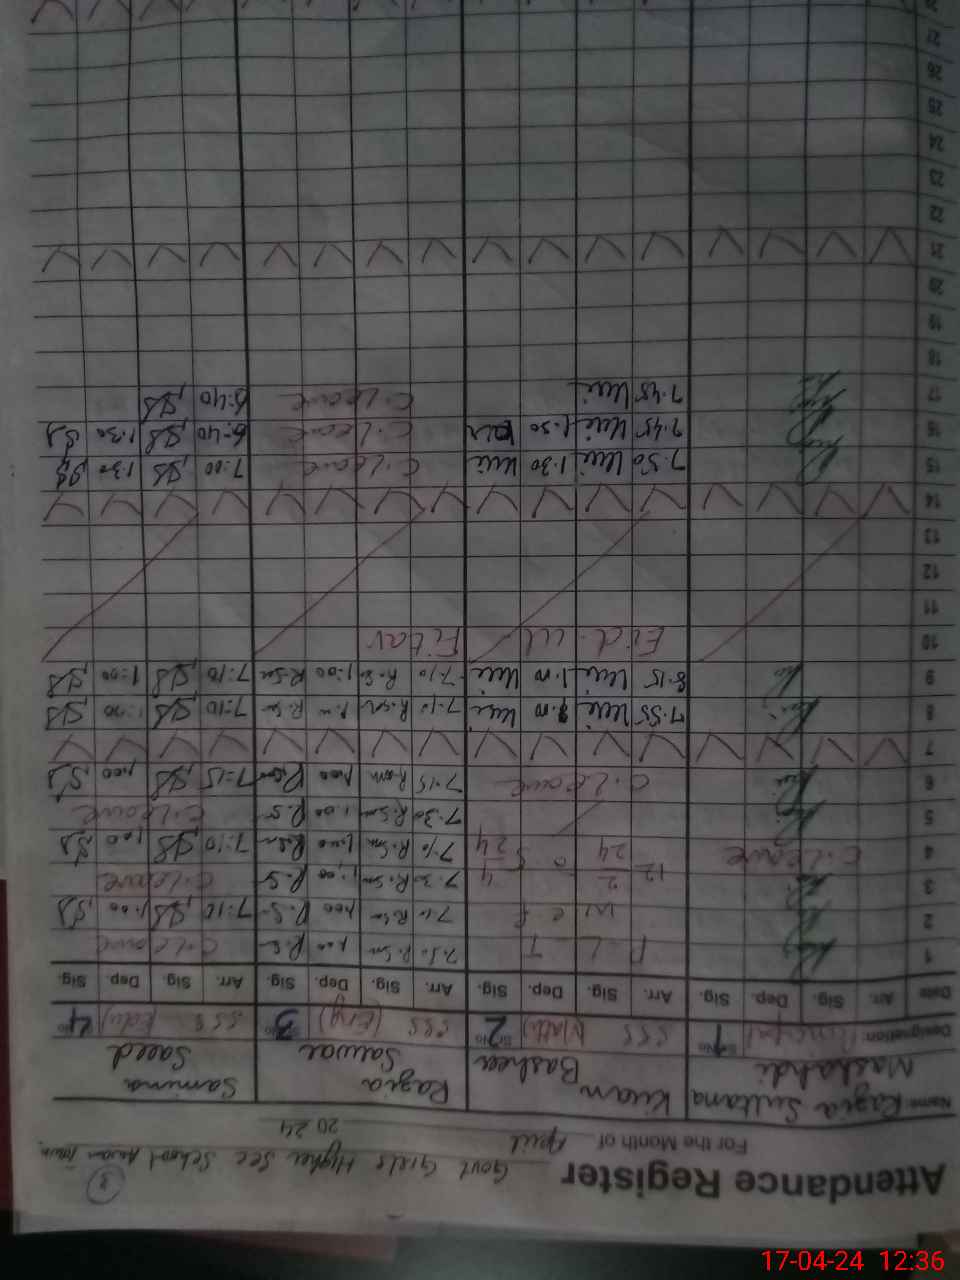 Attendance Register
Govt Girls Higher Sec School Awan Town
3
For the Month of April 2024
Name Razia Sultana Mashahdi
Kiran Basheer
Razia Sarwar
Samina Saeed
Designation Principal Sr.No 1
SSS (Math) Sr.No 2
SSS (Eng) Sr.No 3
SSS (Edu) Sr.No 4
Date Arr. Sig. Dep. Sig. Arr. Sig. Dep. Sig. Arr. Sig. Dep. Sig. Arr. Sig. Dep. Sig.
1 P L T R.Sm 1:00 R.S C.Leave
2 w e f 7:10 R.Sm 1:00 R.S 7:10 SS 1:00 SS
3 12/2/24 To 5/4/24 7:30 R.Sm 1:00 R.S C.Leave
4 C.Leave 7:10 R.Sm 1:00 R.Sm 7:10 SS 1:00 SS
5 7:30 R.Sm 1:00 R.S C.Leave
6 C.Leave 7:15 R.Sm 1:00 R.Sm 7:15 SS 1:00 SS
7
8 7:55 1:00 7:10 R.Sm 1:00 R.Sm 7:10 SS 1:00 SS
9 8:15 1:00 7:10 R.Sm 1:00 R.Sm 7:10 SS 1:00 SS
10 Eid-ul Fitar
11
12
13
14
15 7:50 1:30 C.Leave 7:00 SS 1:30 SS
16 7:45 1:30 C.Leave 6:40 SS 1:30 SS
17 7:45 C.Leave 6:40 SS
18
19
20
21
22
23
24
25
26
27
17-04-24 12:36